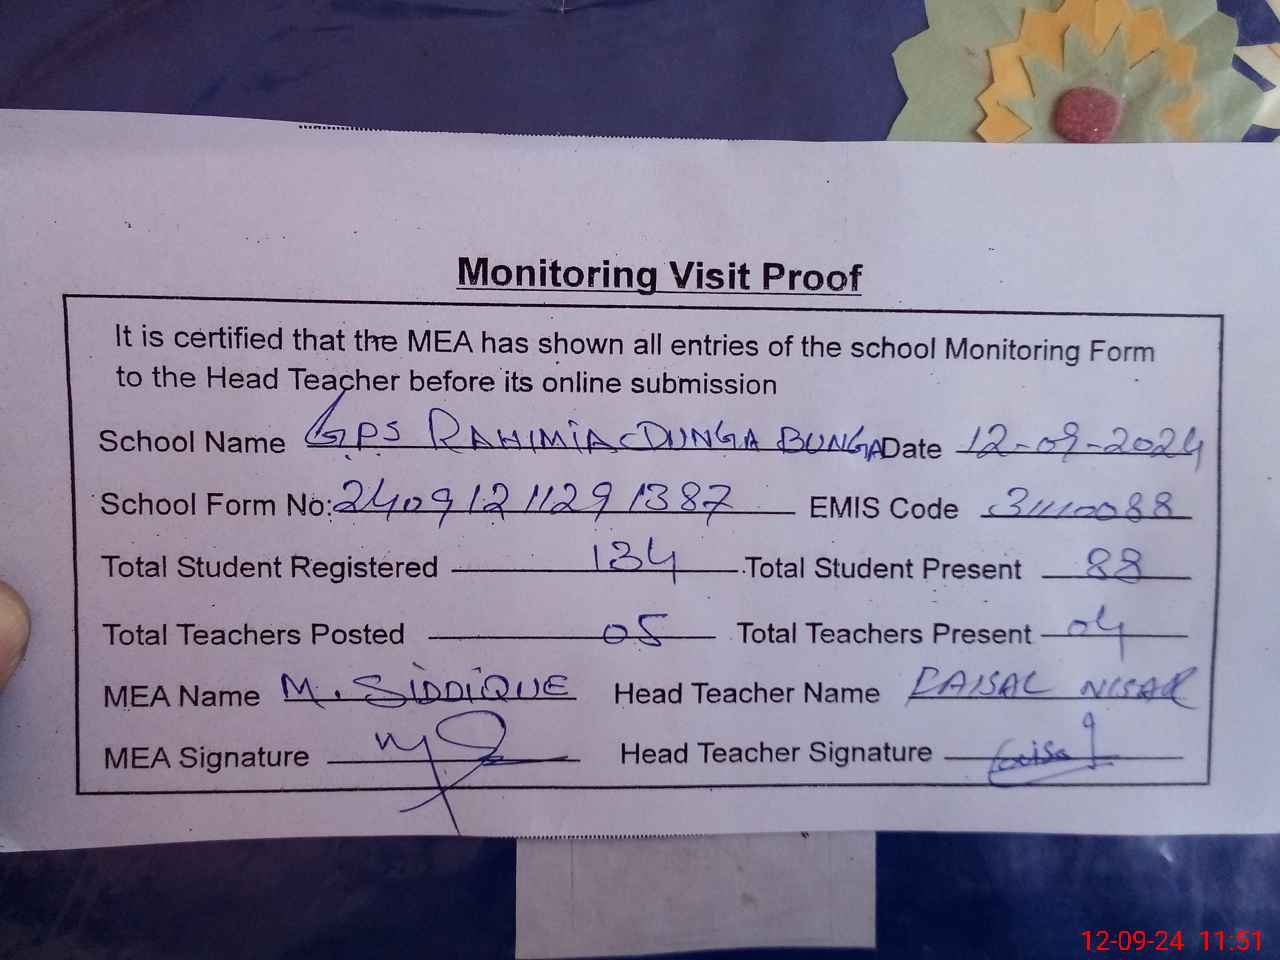 Monitoring Visit Proof
It is certified that the MEA has shown all entries of the school Monitoring Form
to the Head Teacher before its online submission
School Name GPS RAHIMIA DUNGA BUNGA Date 12-09-2024
School Form No: 24091211291387 EMIS Code
Total Student Registered 134 Total Student Present 88
Total Teachers Posted 05 Total Teachers Present 04
MEA Name M. SIDDIQUE Head Teacher Name FAISAL NISAR
MEA Signature Head Teacher Signature
12-09-24 11:51